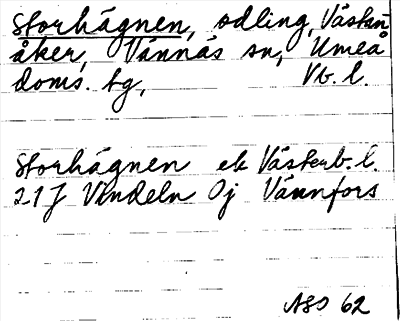 Storhägnen, odling, Västan
åker, Vännäs sn, Umeå
doms. tg, Vb. l.
Storhägnen ek Västerb. l.
21J Vindeln 0j Vännfors
ASO 62